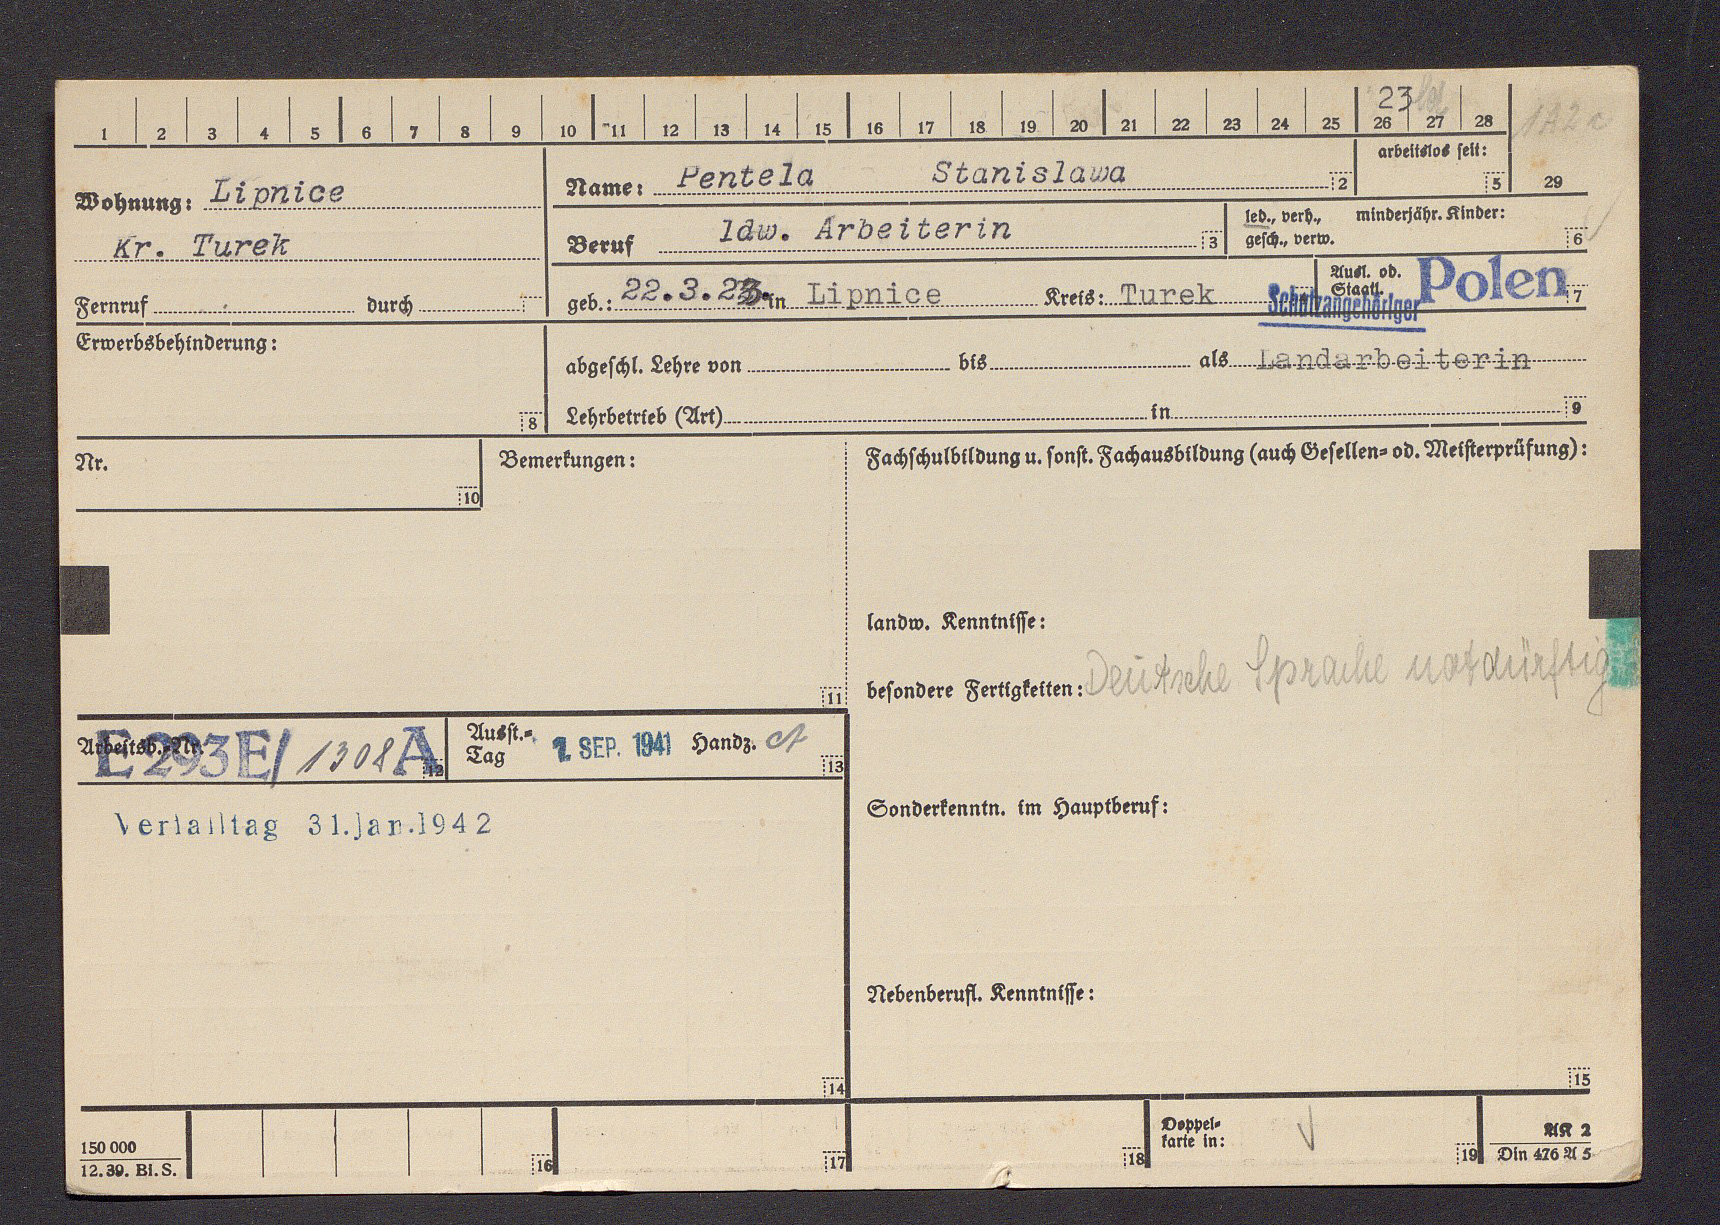 1 2 3 4 5 6 7 8 9 10 11 12 13 14 15 16 17 18 19 20 21 22 23 24 25 26 27 28
23
1A2c
Wohnung: Lipnice
Kr. Turek
Fernruf durch
Name: Pentela Stanislawa 2
arbeitslos seit: 5
29
Beruf ldw. Arbeiterin 3
led., verh., minderjähr. Kinder:
gesch., verw. 6
geb.: 22.3.23. in Lipnice Kreis: Turek
Ausl. od.
Staatl. Polen 7
Schutzangehöriger
Erwerbsbehinderung:
8
abgeschl. Lehre von bis als Landarbeiterin
Lehrbetrieb (Art) in 9
Nr.
10
Bemerkungen:
11
Fachschulbildung u. sonst. Fachausbildung (auch Gesellen= od. Meisterprüfung):
landw. Kenntnisse:
besondere Fertigkeiten: Deutsche Sprache notdürftig
Arbeitsb.-Nr.
E293E/1308A 12
Ausst.=
Tag 1. SEP. 1941 Handz. 13
Verfalltag 31.Jan.1942
14
Sonderkenntn. im Hauptberuf:
Nebenberufl. Kenntnisse:
15
150 000
12. 39. Bl. S.
16
17
18
Doppel=
karte in: 19
AK 2
Din 476 A 5